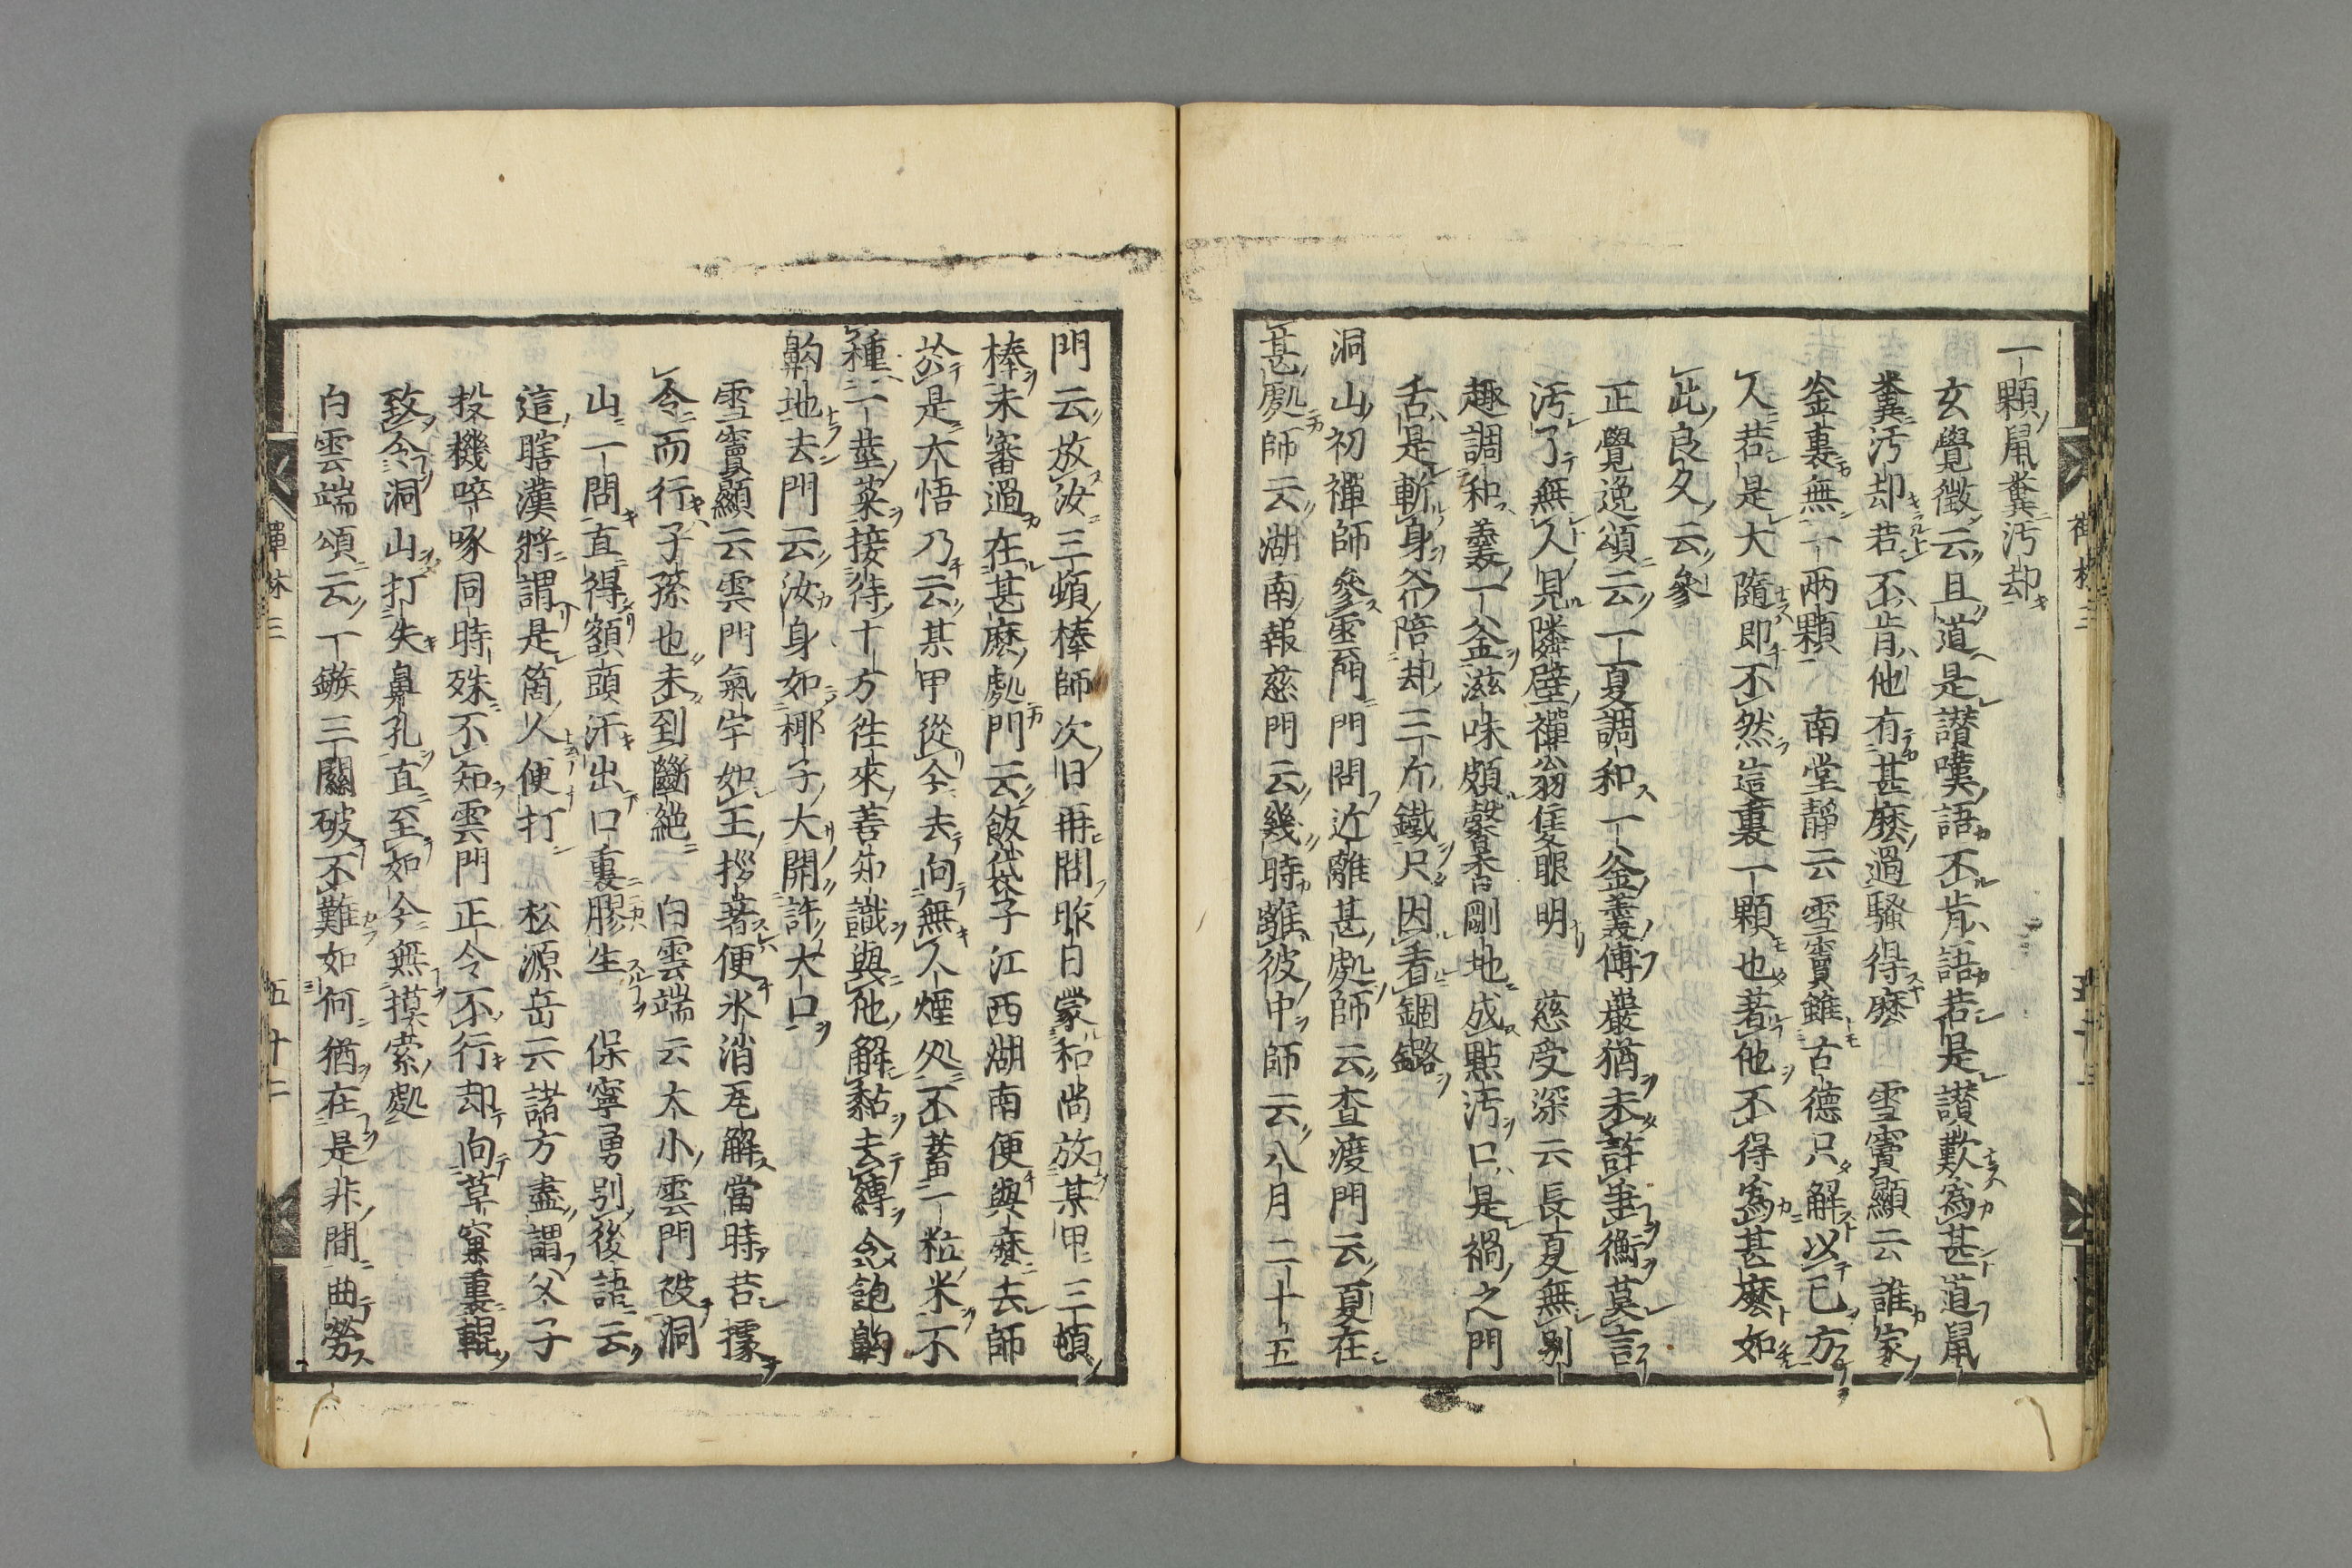 一顆鼠糞汚却
玄覺徵云且道是讃嘆語不肯語若是讃歎為甚道鼠
糞汚却若不肯他有甚麽過騷得麽　雪竇顯云誰家
釜裏無一兩顆　南堂靜云雪竇雖古德只解以已方
人若是大隨即不然這裏一顆也著他不得為甚麽如
此良久云參
正覺逸頌云一夏調和一釜羹傅巖猶未許𠂹衡莫言
汚了無人見隣壁禪翁隻眼明　慈受深云長夏無别
趣調和羹一釜滋味頗馨香剛地成點汚口是禍之門
舌是斬身斧陪却三斤鐵只因看錮鏴
洞山初禪師參雲門門問近離甚處師云查渡門云夏在
甚處師云湖南報慈門云幾時離彼中師云八月二十五
禪林三
門云放汝三頓棒師次日再問昨日蒙和尚放某甲三頓
棒未審過在甚麽處門云飯袋子江西湖南便與麽去師
於是大悟乃云某甲從今去向無人煙処不蓄一粒米不
種一莖菜接待十方往來善知識與他解黏去縛念飽齁
齁地去門云汝身如椰子大開許大口
雪竇顯云雲門氣宇如王拶著便氷消瓦解當時若據
令而行子孫也未到斷絶　白雲端云大小雲門被洞
山一問直得額頭汗出口裏膠生　保寧勇别後語云
這瞎漢將謂是箇人便打　松源岳云諸方盡謂父子
投機啐啄同時殊不知雲門正令不行却向草窠裏輥
致令洞山打失鼻孔直至如今無摸索處
白雲端頌云一鏃三關破不難如何猶在是非間曲勞
禪林三
五十二